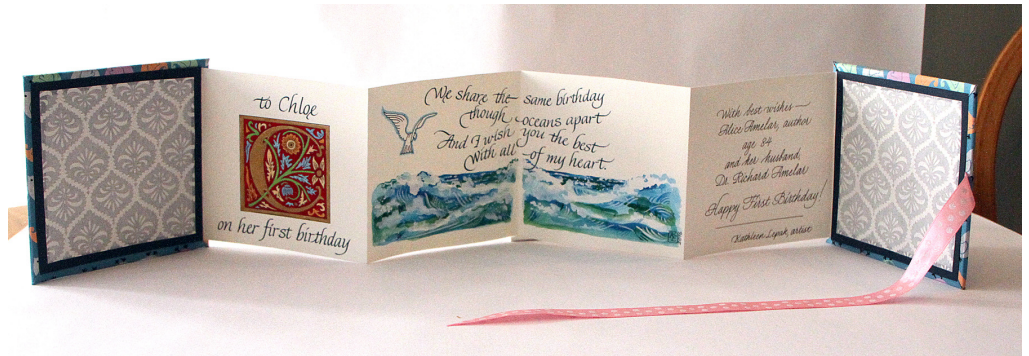 to Chlöe
C
on her first birthday
We share the same birthday
though oceans apart
And I wish you the best
With all of my heart.
With best wishes
Alice Amelar, author
age 84
and her husband,
Dr. Richard Amelar
Happy First Birthday!
Kathleen Lepak, artist